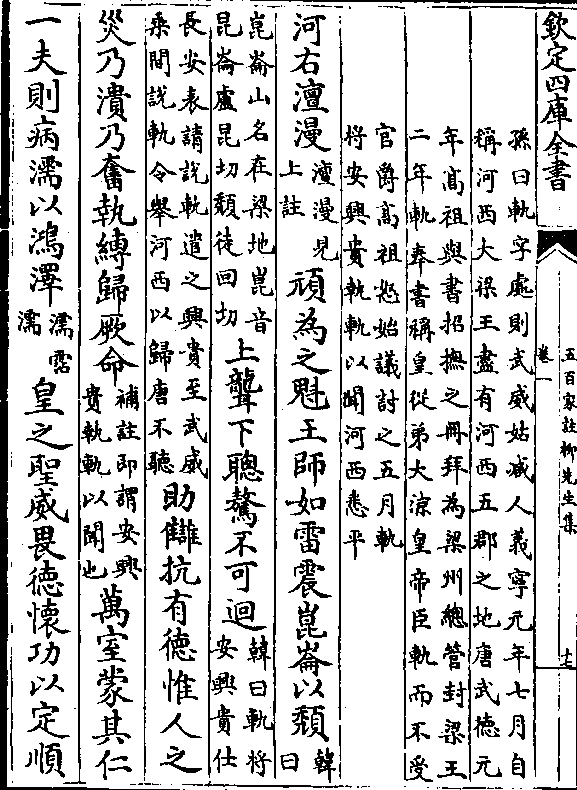 欽定四庫全書
五百家註柳先生集
卷一
十七
孫曰軌字處則武威姑臧人義寧元年七月自
稱河西大梁王盡有河西五郡之地唐武德元
年高祖與書招撫之冊拜為梁州總管封梁王
二年軌奉書稱皇從弟大涼皇帝臣軌而不受
官爵高祖怒始議討之五月軌
將安興貴執軌以聞河西悉平
河右澶漫
澶漫見
上註
頑為之魁王師如雷震崑崙以頹
韓
曰
崑崙山名在梁地崑音
昆崙盧昆切頹徒回切
上聾下聰驁不可迴
韓曰軌將
安興貴仕
長安表請說軌遣之興貴至武威
乘間說軌令舉河西以歸唐不聽
助讎抗有德惟人之
災乃潰乃奮執縛歸厥命
補註即謂安興
貴執軌以聞也
萬室蒙其仁
一夫則病濡以鴻澤
濡霑
濡
皇之聖威畏徳懷功以定順